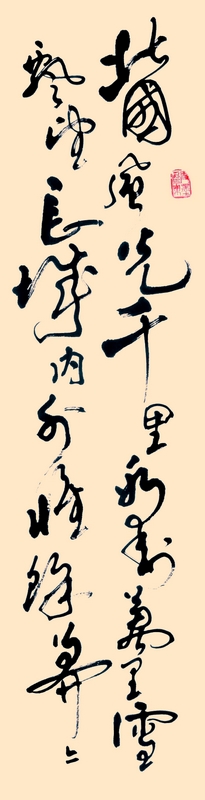 北國風光千里冰封萬里雪
飄望長城內外惟餘莽〻